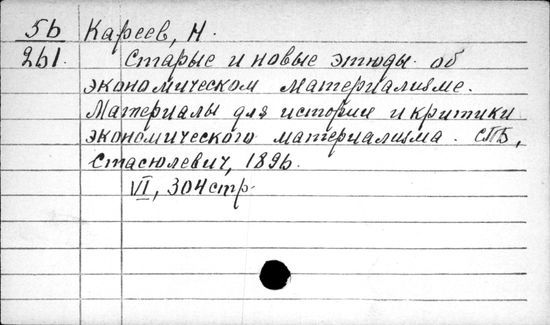 56 Кареев, Н.
261. Старые и новые этюды об
экономическом материализме.
Материалы для истории и критики
экономического материализма. СПБ,
Стасюлевич, 1896.
VI, 304 стр.